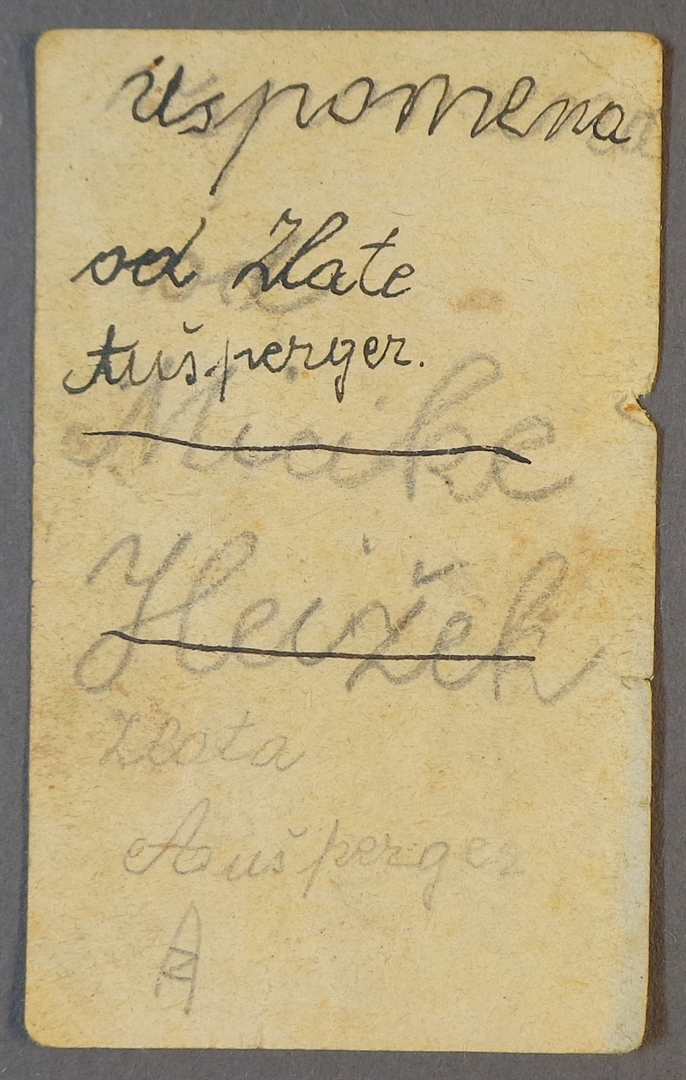 uspomena
od Zlate
Aušperger.
Micike
Zlata
Aušperger